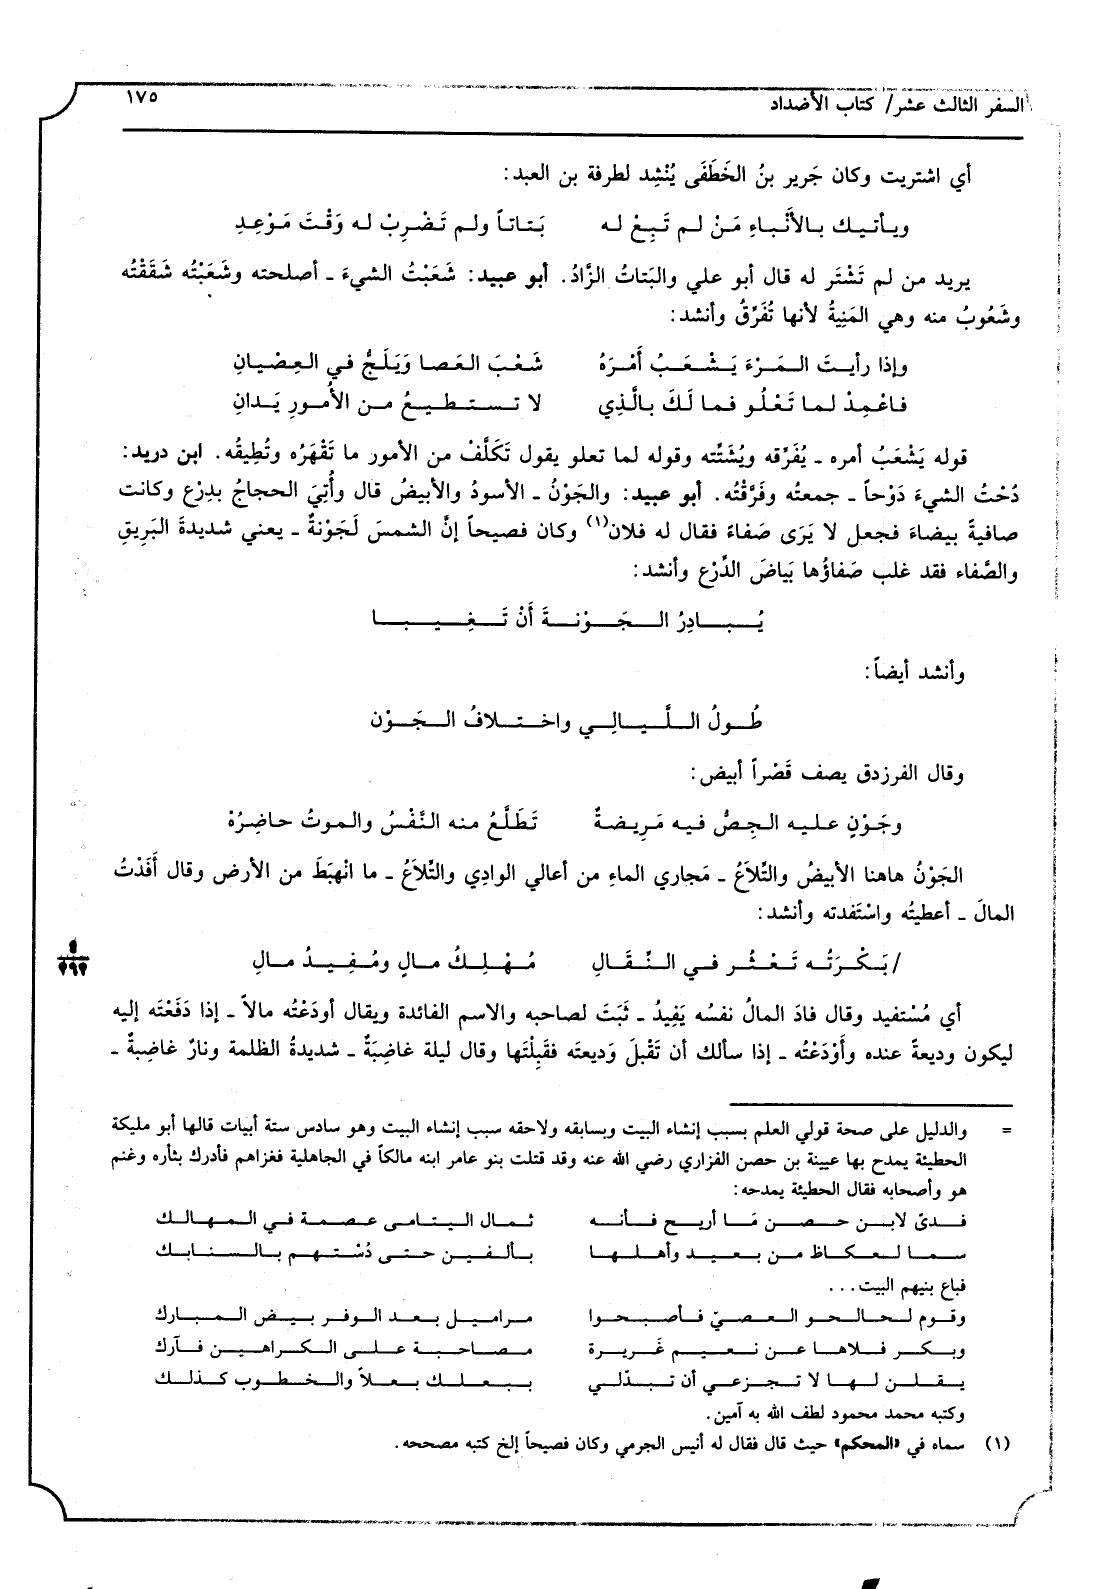 السفر الثالث عشر/ كتاب الأضداد ١٧٥
أي اشتريت وكان جَرير بنُ الخَطَفَى يُنْشِد لطرفة بن العبد:
ويأتيك بالأَنْباءِ مَنْ لم تَبِعْ له بَتاتاً ولم تَضْرِبْ له وَقْتَ مَوْعِدِ
يريد من لم تَشْتَر له قال أبو علي والبَتاتُ الزَّادُ. أبو عبيد: شَعَبْتُ الشيءَ ـ أصلحته وشَعَبْتُه شَقَقْتُه
وشَعُوبُ منه وهي المَنِيةُ لأنها تُفَرِّقُ وأنشد:
وإذا رأيتَ المَرْءَ يَشْعَبُ أَمْرَهُ شَعْبَ العَصا وَيَلَجُّ في العِصْيانِ
فاعْمِدْ لما تَعْلُو فما لَكَ بالَّذِي لا تستطيعُ من الأُمورِ يَدانِ
قوله يَشْعَبُ أمره ـ يُفَرِّقه ويُشَتِّته وقوله لما تعلو يقول تَكَلَّفْ من الأمور ما تَقْهَرُه وتُطِيقُه. ابن دريد:
دُحْتُ الشيءَ دَوْحاً ـ جمعته وفَرَّقْتُه. أبو عبيد: والجَوْنُ ـ الأسودُ والأبيضُ قال وأُتِيَ الحجاجُ بدِرْع وكانت
صافيةً بيضاءَ فجعل لا يَرَى صَفاءً فقال له فلان(١) وكان فصيحاً إنَّ الشمسَ لَجَوْنةٌ ـ يعني شديدةَ البَريقِ
والصَّفاء فقد غلب صَفاؤُها بَياضَ الدِّرْع وأنشد:
يُبادِرُ الجَوْنةَ أَنْ تَغِيبا
وأنشد أيضاً:
طُولُ اللَّيالِي واختلافُ الجَوْن
وقال الفرزدق يصف قَصْراً أبيض:
وجَوْنٍ عليه الجِصُّ فيه مَرِيضةٌ تَطَلَّعُ منه النَّفْسُ والموتُ حاضِرُهْ
الجَوْنُ هاهنا الأبيضُ والتِّلاَعُ ـ مَجاري الماءِ من أعالي الوادِي والتِّلاَعُ ـ ما انْهبَطَ من الأرض وقال أَفَدْتُ
المالَ ـ أعطيتُه واسْتَفدته وأنشد:
/بَكْرَتُه تَعْثُر في النِّقَالِ مُهْلِكُ مالٍ ومُفِيدُ مالِ
٤
٢٦٢
أي مُسْتفيد وقال فادَ المالُ نفسُه يَفِيدُ ـ ثَبَتَ لصاحبه والاسم الفائدة ويقال أودَعْتُه مالاً ـ إذا دَفَعْتَه إليه
ليكون وديعةً عنده وأَوْدَعْتُه ـ إذا سألك أن تَقْبلَ وَديعتَه فقَبِلْتَها وقال ليلة غاضِيَةٌ ـ شديدةُ الظلمة ونارٌ غاضِيةٌ ـ
= والدليل على صحة قولي العلم بسبب إنشاء البيت وبسابقه ولاحقه سبب إنشاء البيت وهو سادس ستة أبيات قالها أبو مليكة
الحطيئة يمدح بها عيينة بن حصن الفزاري رضي الله عنه وقد قتلت بنو عامر ابنه مالكاً في الجاهلية فغزاهم فأدرك بثأره وغنم
هو وأصحابه فقال الحطيئة يمدحه:
فدىً لابن حصن مَا أريح فأنه ثمال اليتامى عصمة في المهالك
سما لعكاظ من بعيد وأهلها بألفين حتى دُسْتهم بالسنابك
فباع بنيهم البيت...
وقوم لحالحو العصيّ فأصبحوا مراميل بعد الوفر بيض المبارك
وبكر فلاها عن نعيم غَريرة مصاحبة على الكراهين فآرك
يقلن لها لا تجزعي أن تبدّلي ببعلك بعلاً والخطوب كذلك
وكتبه محمد محمود لطف الله به آمين.
(١) سماه في «المحكم» حيث قال فقال له أنيس الجرمي وكان فصيحاً إلخ كتبه مصححه.